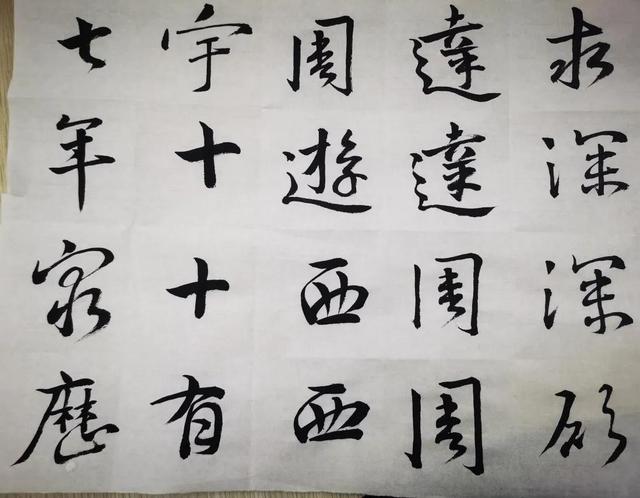 求深深願
達達周周
周遊西西
宇十十有
七年窮歷